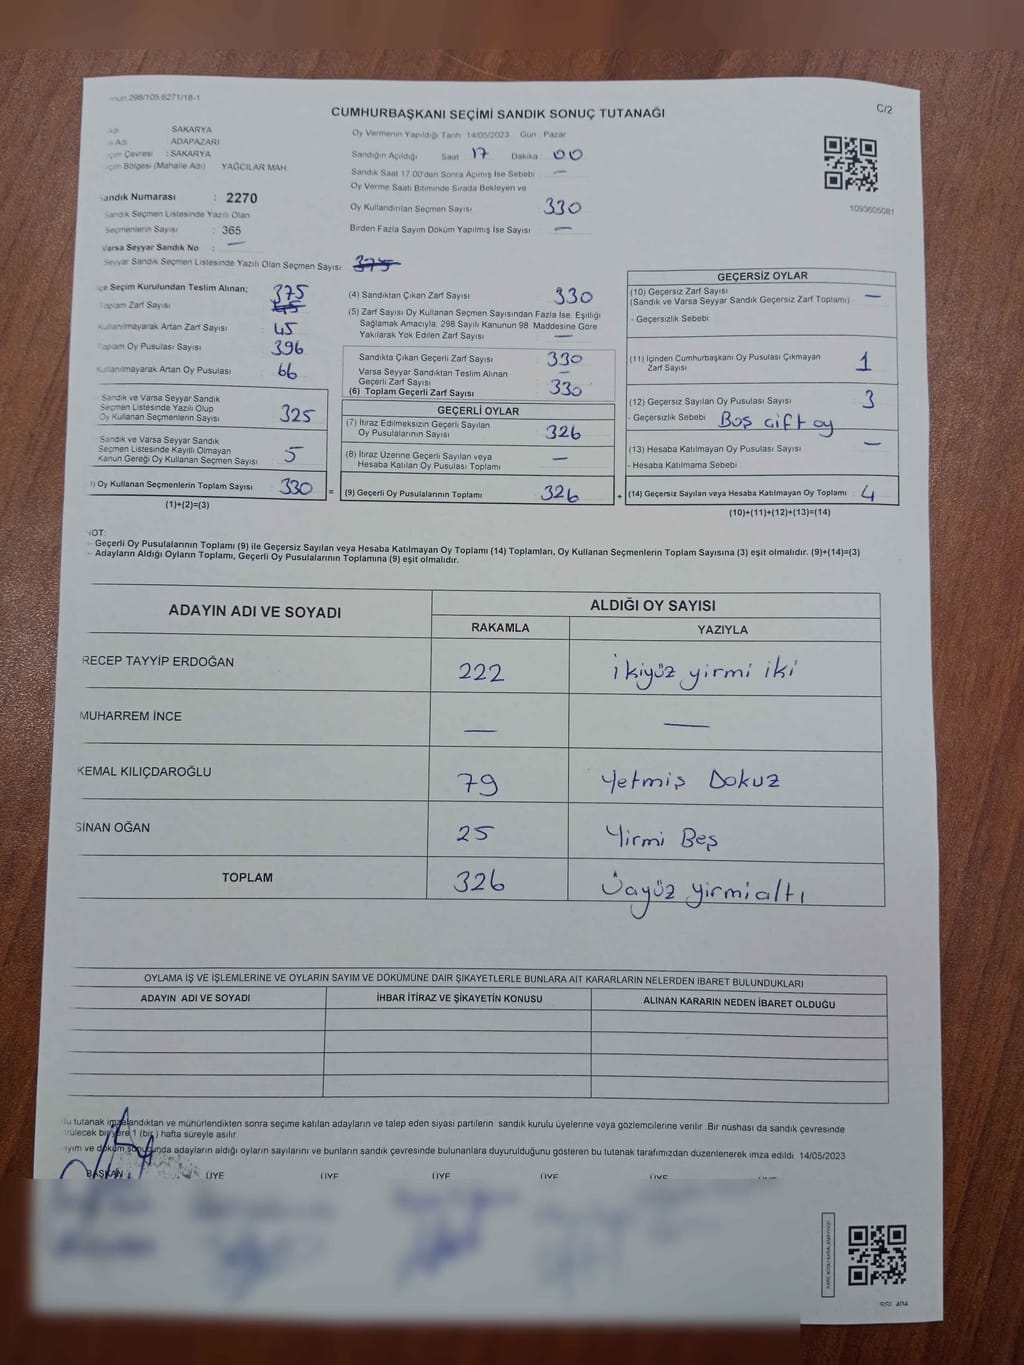 298/105,6271/18-1
C/2
CUMHURBAŞKANI SEÇİMİ SANDIK SONUÇ TUTANAĞI
Adı SAKARYA
Adı ADAPAZARI
Çevresi : SAKARYA
Bölgesi (Mahalle Adı) YAĞCILAR MAH.
Sandık Numarası : 2270
Sandık Seçmen Listesinde Yazılı Olan
Seçmenlerin Sayısı : 365
Varsa Seyyar Sandık No : —
Seyyar Sandık Seçmen Listesinde Yazılı Olan Seçmen Sayısı: 375
Oy Vermenin Yapıldığı Tarih 14/05/2023 Gün Pazar
Sandığın Açıldığı Saat 17 Dakika 00
Sandık Saat 17.00'den Sonra Açımış İse Sebebi —
Oy Verme Saati Bitiminde Sırada Bekleyen ve
Oy Kullandırılan Seçmen Sayısı 330
Birden Fazla Sayım Döküm Yapılmış İse Sayısı —
1093605081
İlçe Seçim Kurulundan Teslim Alınan;
Toplam Zarf Sayısı 375
Kullanılmayarak Artan Zarf Sayısı 45
Toplam Oy Pusulası Sayısı 396
Kullanılmayarak Artan Oy Pusulası 66
Sandık ve Varsa Seyyar Sandık
Seçmen Listesinde Yazılı Olup
Oy Kullanan Seçmenlerin Sayısı 325
Sandık ve Varsa Seyyar Sandık
Seçmen Listesinde Kayıtlı Olmayan
Kanun Gereği Oy Kullanan Seçmen Sayısı 5
) Oy Kullanan Seçmenlerin Toplam Sayısı 330 =
(1)+(2)=(3)
(4) Sandıktan Çıkan Zarf Sayısı 330
(5) Zarf Sayısı Oy Kullanan Seçmen Sayısından Fazla İse, Eşitliği
Sağlamak Amacıyla, 298 Sayılı Kanunun 98. Maddesine Göre
Yakılarak Yok Edilen Zarf Sayısı —
Sandıkta Çıkan Geçerli Zarf Sayısı 330
Varsa Seyyar Sandıktan Teslim Alınan
Geçerli Zarf Sayısı —
(6) Toplam Geçerli Zarf Sayısı 330
GEÇERLİ OYLAR
(7) İtiraz Edilmeksizin Geçerli Sayılan
Oy Pusulalarının Sayısı 326
(8) İtiraz Üzerine Geçerli Sayılan veya
Hesaba Katılan Oy Pusulası Toplamı —
(9) Geçerli Oy Pusulalarının Toplamı 326 +
GEÇERSİZ OYLAR
(10) Geçersiz Zarf Sayısı —
(Sandık ve Varsa Seyyar Sandık Geçersiz Zarf Toplamı)
- Geçersizlik Sebebi
(11) İçinden Cumhurbaşkanı Oy Pusulası Çıkmayan
Zarf Sayısı 1
(12) Geçersiz Sayılan Oy Pusulası Sayısı 3
- Geçersizlik Sebebi Boş çift oy
(13) Hesaba Katılmayan Oy Pusulası Sayısı —
- Hesaba Katılmama Sebebi
(14) Geçersiz Sayılan veya Hesaba Katılmayan Oy Toplamı 4
(10)+(11)+(12)+(13)=(14)
NOT:
- Geçerli Oy Pusulalarının Toplamı (9) ile Geçersiz Sayılan veya Hesaba Katılmayan Oy Toplamı (14) Toplamları, Oy Kullanan Seçmenlerin Toplam Sayısına (3) eşit olmalıdır. (9)+(14)=(3)
- Adayların Aldığı Oyların Toplamı, Geçerli Oy Pusulalarının Toplamına (9) eşit olmalıdır.
ADAYIN ADI VE SOYADI ALDIĞI OY SAYISI
RAKAMLA YAZIYLA
RECEP TAYYİP ERDOĞAN 222 İkiyüz yirmi iki
MUHARREM İNCE — —
KEMAL KILIÇDAROĞLU 79 Yetmiş Dokuz
SİNAN OĞAN 25 Yirmi Beş
TOPLAM 326 Üçyüz yirmialtı
OYLAMA İŞ VE İŞLEMLERİNE VE OYLARIN SAYIM VE DÖKÜMÜNE DAİR ŞİKAYETLERLE BUNLARA AİT KARARLARIN NELERDEN İBARET BULUNDUKLARI
ADAYIN ADI VE SOYADI İHBAR İTİRAZ VE ŞİKAYETİN KONUSU ALINAN KARARIN NEDEN İBARET OLDUĞU
Bu tutanak imzalandıktan ve mühürlendikten sonra seçime katılan adayların ve talep eden siyasi partilerin sandık kurulu üyelerine veya gözlemcilerine verilir. Bir nüshası da sandık çevresinde
görülecek bir yere 1 (bir) hafta süreyle asılır.
Sayım ve döküm sonucunda adayların aldığı oyların sayılarını ve bunların sandık çevresinde bulunanlara duyurulduğunu gösteren bu tutanak tarafımızdan düzenlenerek imza edildi. 14/05/2023
BAŞKAN ÜYE ÜYE ÜYE ÜYE ÜYE ÜYE
SSI 404